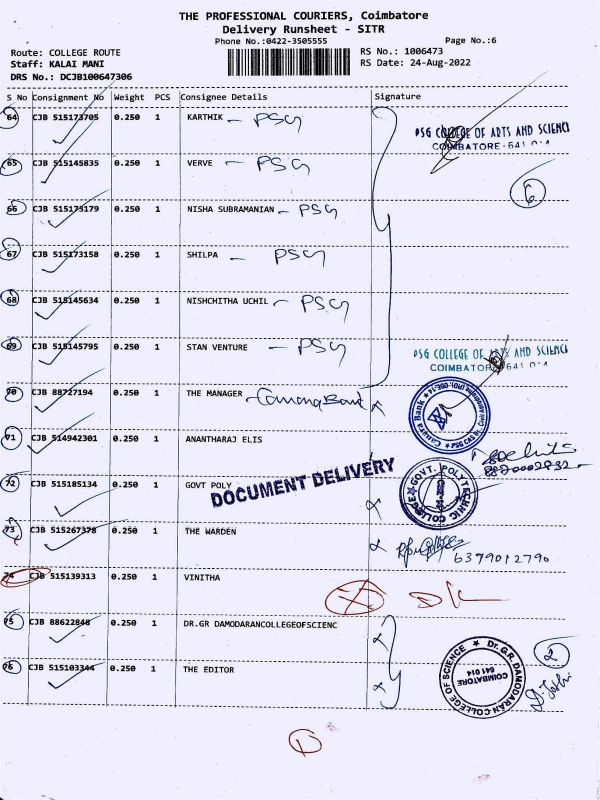 THE PROFESSIONAL COURIERS, Coimbatore
Delivery Runsheet - SITR
Phone No.:0422-3505555 Page No.:6
Route: COLLEGE ROUTE RS No.: 1006473
Staff: KALAI MANI RS Date: 24-Aug-2022
DRS No.: DCJB100647306
S No Consignment No Weight PCS Consignee Details Signature
64 CJB 515173705 0.250 1 KARTHIK - PSG
PSG COLLEGE OF ARTS AND SCIENCE
COIMBATORE - 641 014
65 CJB 515145835 0.250 1 VERVE - PSG
6
66 CJB 515175179 0.250 1 NISHA SUBRAMANIAN - PSG
67 CJB 515173158 0.250 1 SHILPA - PSG
68 CJB 515145634 0.250 1 NISHCHITHA UCHIL - PSG
69 CJB 515145795 0.250 1 STAN VENTURE - PSG
PSG COLLEGE OF ARTS AND SCIENCE
COIMBATORE 641 014
70 CJB 88727194 0.250 1 THE MANAGER Canara Bank
Canara Bank
71 CJB 514942301 0.250 1 ANANTHARAJ ELIS
72 CJB 515185134 0.250 1 GOVT POLY
DOCUMENT DELIVERY
GOVT. POLYTECHNIC COLLEGE
73 CJB 515267378 0.250 1 THE WARDEN
6379012790
74 CJB 515139313 0.250 1 VINITHA
75 CJB 88622848 0.250 1 DR.GR DAMODARANCOLLEGEOFSCIENC
76 CJB 515103344 0.250 1 THE EDITOR
Dr. G.R. DAMODARAN COLLEGE OF SCIENCE
COIMBATORE
641 014
2
1